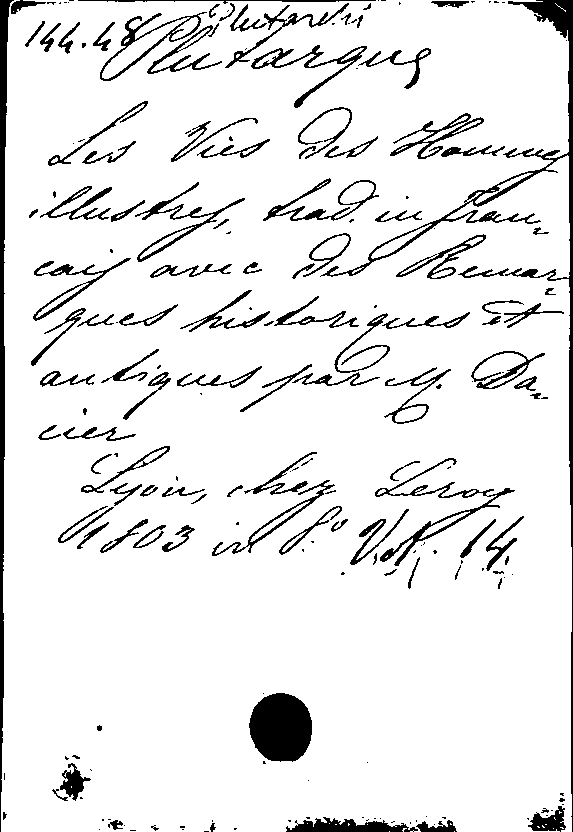 Plutarchi
144.48 Plutarque
Les Vies des Hommes
illustres, trad. in fran-
cais avec des Remar-
ques historiques et
antiques par M. Da-
cier
Lyon, chez Leroy
1803 in 8° Vol. 14.